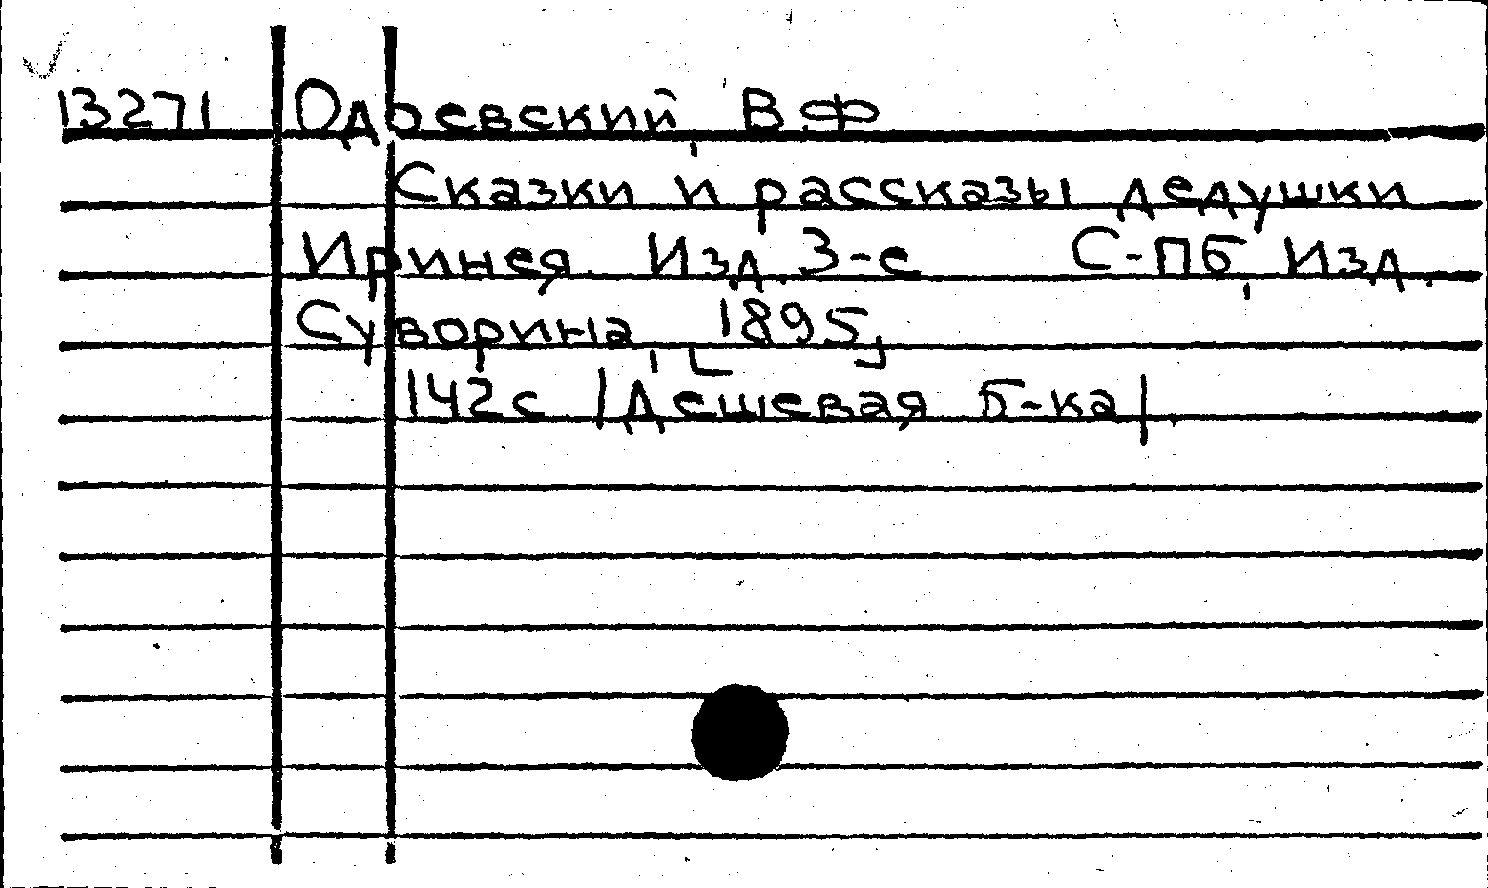 13271 Одоевский, В.Ф
Сказки и рассказы дедушки
Иринея. Изд. 3-е С-ПБ, Изд.
Суворина, [1895]
142с /Дешевая б-ка/.